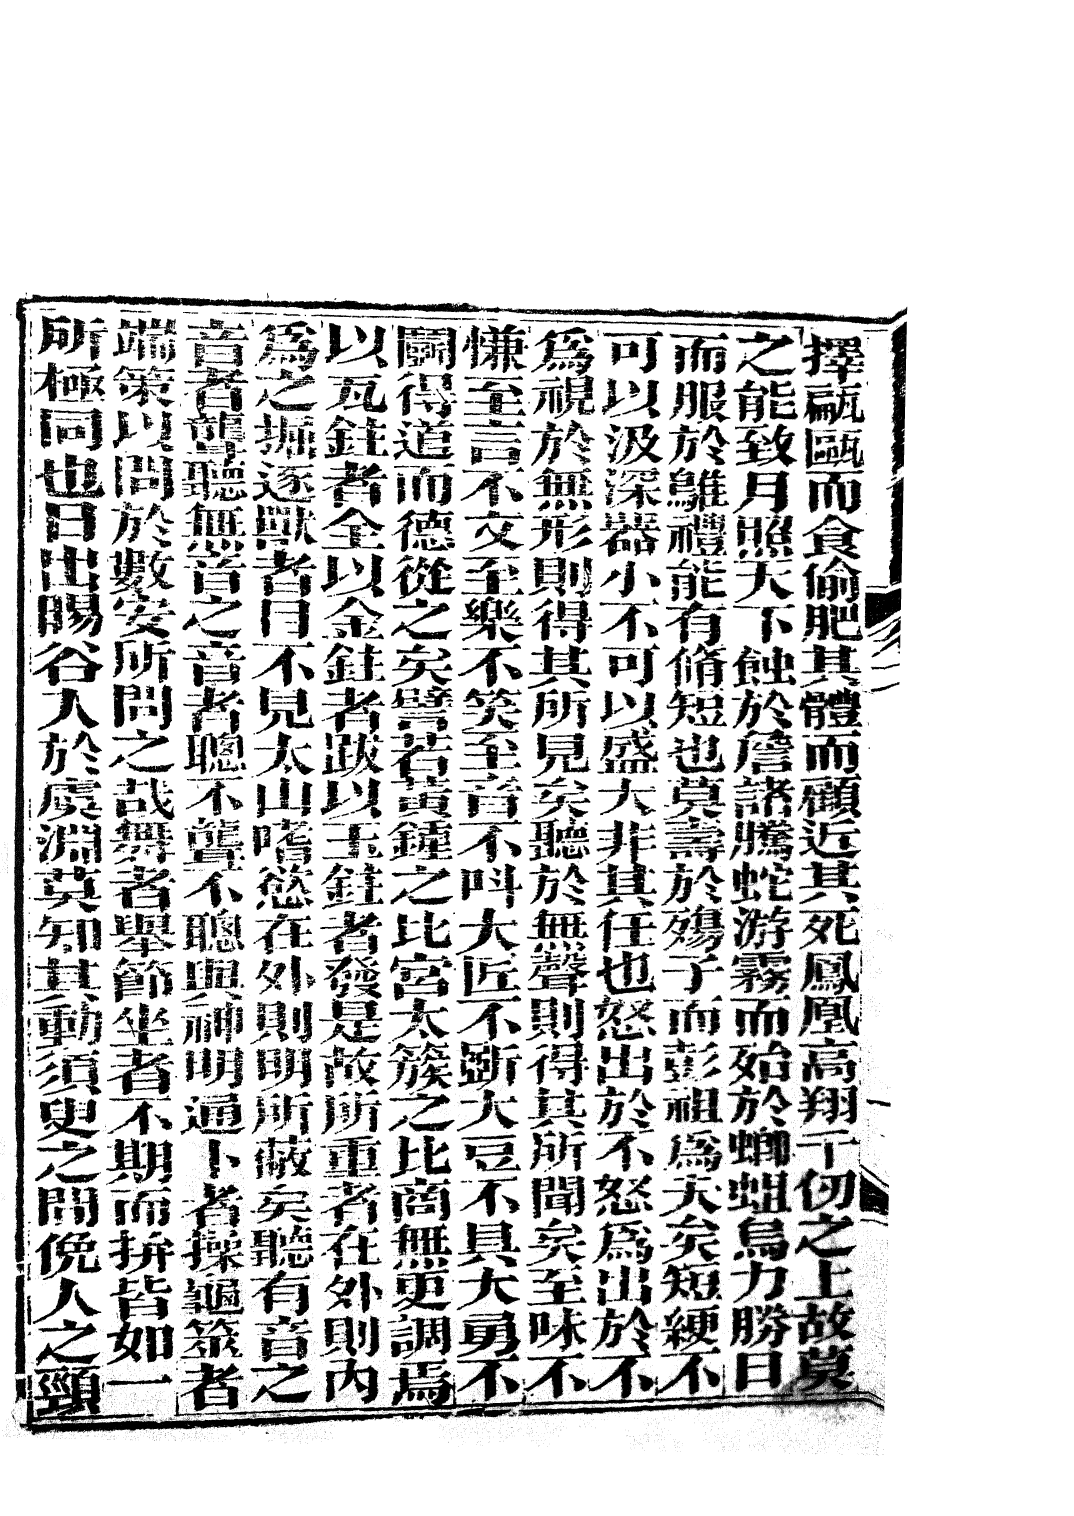 擇瓾甌而食偷肥其體而顧近其死鳳凰高翔千仞之上故莫
之能致月照天下蝕於詹諸騰蛇游霧而殆於蝍蛆烏力勝日
而服於鵻禮能有脩短也莫壽於殤子而彭祖爲夭矣短綆不
可以汲深器小不可以盛大非其任也怒出於不怒爲出於不
爲視於無形則得其所見矣聽於無聲則得其所聞矣至味不
慊至言不文至樂不笑至音不叫大匠不斲大豆不具大勇不
鬭得道而德從之矣譬若黃鍾之比宮太簇之比商無更調焉
以瓦鉒者全以金鉒者跋以玉鉒者發是故所重者在外則內
爲之掘逐獸者目不見太山嗜慾在外則明所蔽矣聽有音之
音者聾聽無音之音者聰不聾不聰與神明通卜者操龜筮者
端策以問於數安所問之哉舞者舉節坐者不期而拚皆如一
所極同也日出暘谷入於虞淵莫知其動須臾之間俛人之頸